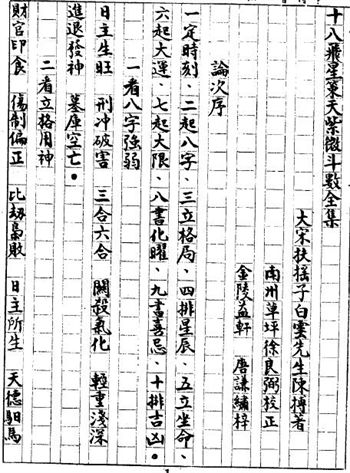 十八飛星策天紫微斗數全集
大宋扶搖子白雲先生陳摶著
南州草坪徐良弼校正
金陵益軒 唐謙繡梓
論次序
一定時刻、二起八字、三立格局、四排星辰、五立坐命、
六起大運、七起大限、八書化曜、九書喜忌、十排吉凶。
一看八字強弱
日主生旺 刑冲破害 三合六合 關殺氣化 輕重淺深
進退發神 墓庫空亡。
二看立格用神
財官印食 傷劊偏正 比劫梟敗 日主所生 天德驲馬
1